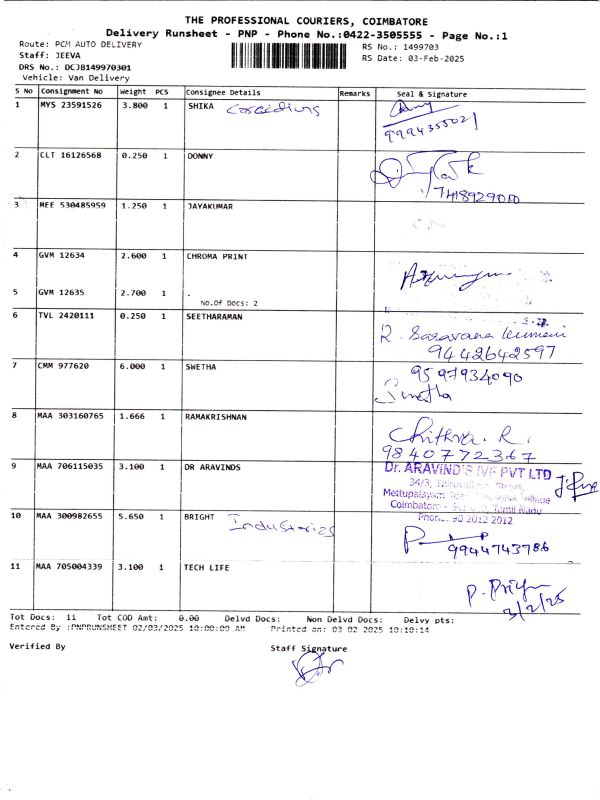 THE PROFESSIONAL COURIERS, COIMBATORE
Delivery Runsheet - PNP - Phone No.:0422-3505555 - Page No.:1
Route: PCM AUTO DELIVERY
RS No.: 1499703
Staff: JEEVA
RS Date: 03-Feb-2025
DRS No.: DCJB149970301
Vehicle: Van Delivery
S No Consignment No Weight PCS Consignee Details Remarks Seal & Signature
1 MYS 23591526 3.800 1 SHIKA
2 CLT 16126568 0.250 1 DONNY
7418929010
3 MEE 530485959 1.250 1 JAYAKUMAR
4 GVM 12634 2.600 1 CHROMA PRINT
5 GVM 12635 2.700 1 .
No.Of Docs: 2
6 TVL 2420111 0.250 1 SEETHARAMAN
R. Saravana Kumari
9442642597
7 CMM 977620 6.000 1 SWETHA
9597934090
Swetha
8 MAA 303160765 1.666 1 RAMAKRISHNAN
Chithra. R.
9840772367
9 MAA 706115035 3.100 1 DR ARAVINDS
Dr. ARAVIND'S IVF PVT LTD
34/3,
Mettupalayam
Coimbatore Tamil Nadu
Phone: 90 2012 2012
10 MAA 300982655 5.650 1 BRIGHT Industries
9944743786
11 MAA 705004339 3.100 1 TECH LIFE
P. Priya
3/2/25
Tot Docs: 11 Tot COD Amt: 0.00 Delvd Docs: Non Delvd Docs: Delvy pts:
Entered By :PNPRUNSHEET 02/03/2025 10:00:00 AM Printed on: 03 02 2025 10:10:14
Verified By
Staff Signature